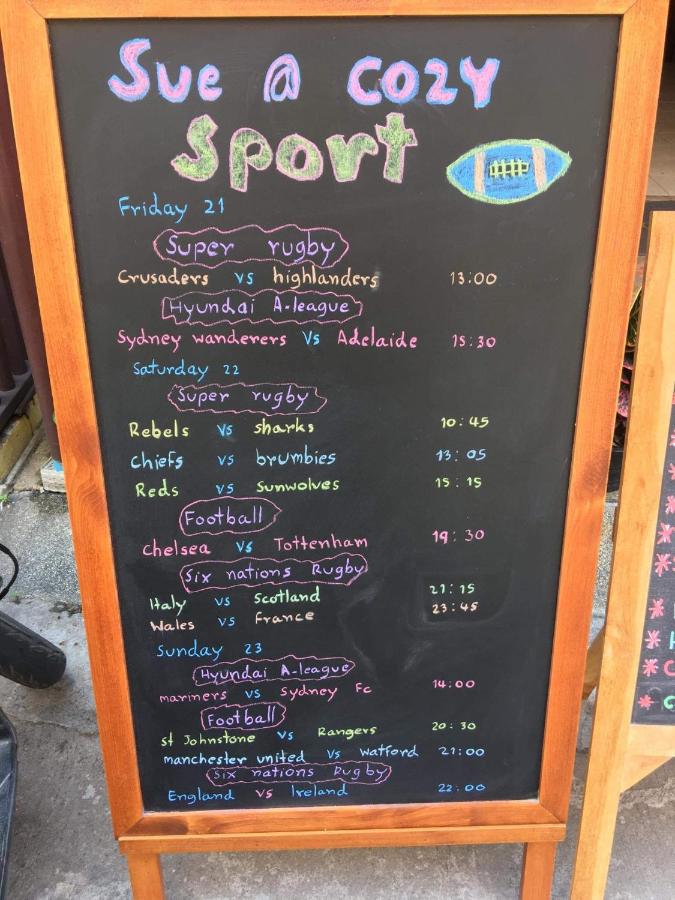 Sue @ COZY
Sport
Friday 21
Super rugby
Crusaders vs highlanders 13:00
Hyundai A-league
Sydney wanderers Vs Adelaide 15:30
Saturday 22
Super rugby
Rebels vs sharks 10:45
Chiefs vs brumbies 13:05
Reds vs sunwolves 15:15
Football
Chelsea vs Tottenham 19:30
Six nations Rugby
Italy vs Scotland 21:15
Wales vs France 23:45
Sunday 23
Hyundai A-league
mariners vs Sydney Fc 14:00
Football
st Johnstone vs Rangers 20:30
manchester united vs watford 21:00
Six nations Rugby
England vs Ireland 22:00